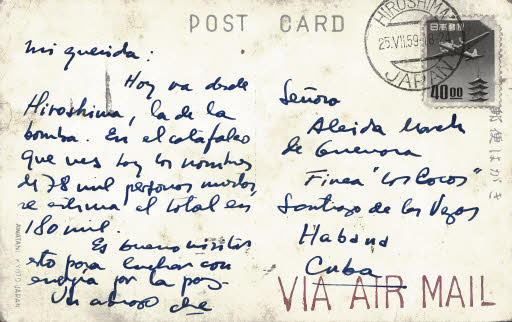 POST CARD
HIROSHIMA
25.VII.59
JAPAN
日本郵便
40.00
郵便はがき
Mi querida:
Hoy va desde
Hiroshima, la de la
bomba. En el catafalco
que ves hay los nombres
de 78 mil personas muertas,
se estima el total en
180 mil.
Es bueno visitar
esto para luchar con
energía por la paz.
Un abrazo
Che
Señora
Aleida March
de Guevara
Finca "Los Cocos"
Santiago de las Vegas
Habana
Cuba
VIA AIR MAIL
KYOTO JAPAN